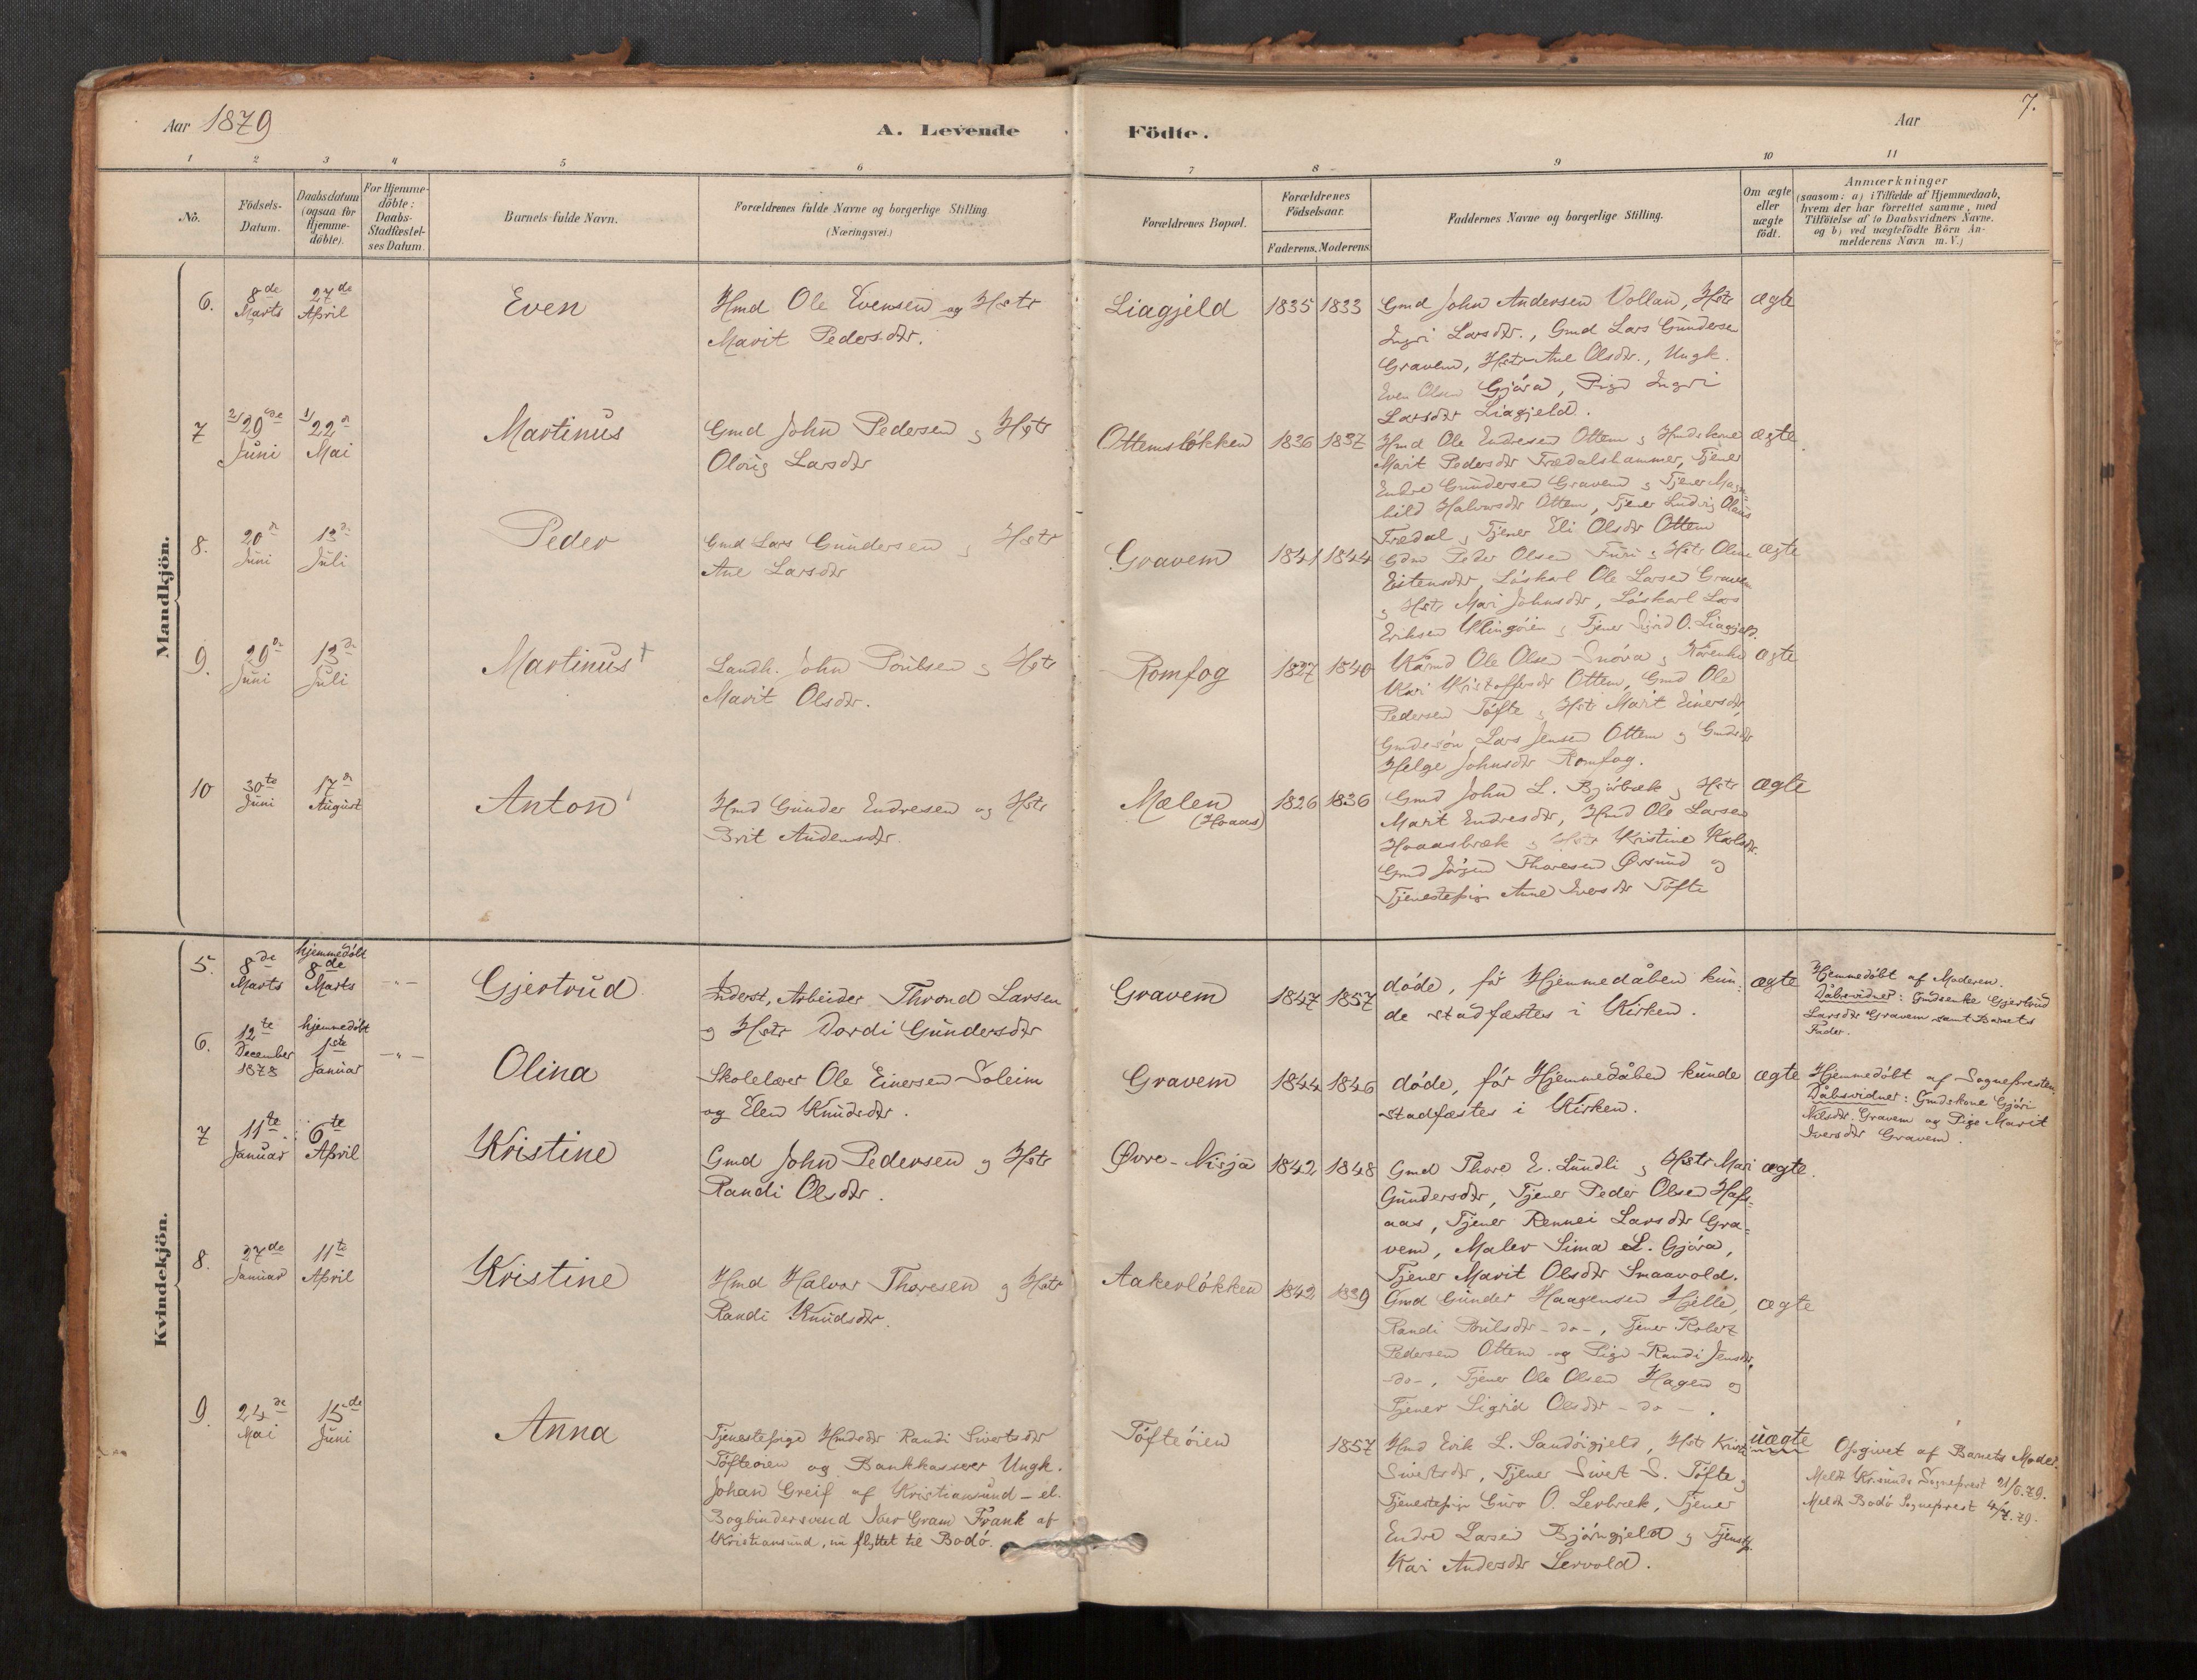 Aar 1879
A. Levende Födte.
Aar
7.
1 2 3 4 5 6 7 8 9 10 11
No.
Födsels-Datum.
Daabsdatum (ogsaa for Hjemme-döbte).
For Hjemme-döbte: Daabs-Stadfæstel-ses Datum.
Barnets fulde Navn.
Forældrenes fulde Navne og borgerlige Stilling (Næringsvei.)
Forældrenes Bopæl.
Forældrenes Födselsaar.
Faderens. Moderens.
Faddernes Navne og borgerlige Stilling.
Om ægte eller uægte födt.
Anmærkninger
(saasom: a) i Tilfælde af Hjemmedaab,
hvem der har forrettet samme, med
Tilföielse af to Daabsvidners Navne.
og b) ved uægtefödte Börn An-
melderens Navn m. V.)
Mandkjön.
6. 8de Marts 27de April
Even
Hmd Ole Evensen og Hstr
Marit Pedersdtr.
Liagjeld 1835 1833
Gmd John Andersen Vollan, Hstr
Ingri Larsdtr., Gmd Lars Gunderse
Gravem, Hstr Ane Olsdtr., Ungk.
Even Olsen Gjöra, Pige Ingri
Larsdtr Liagjeld.
ægte
7 2/29de Juni 1/22d Mai
Martinus
Gmd John Pedersen g Hstr
Olöug Larsdtr
Ottemslökken 1836 1837
Hmd Ole Endresen Ottem g Hmdskone
Marit Pedersdtr Frædalshammer, Tjener
Endre Gundersen Gravem g Tjener Magn-
hild Halvorsdtr Ottem, Tjener Ludvig Olaus
Frædal g Tjener Eli Olsdtr Ottem
ægte
8. 20d Juni 13d Juli
Peder
Gmd Lars Gundersen g Hstr
Ane Larsdtr
Gravem 1841 1844
Gdm Peder Olsen Furu g Hstr Oline
Eistensdtr, Löskarl Ole Larsen Gravem
g Hstr Mari Johnsdtr, Löskarl Lars
Eriksen Klingöien g Tjener Sigrid O. Liagjeld.
ægte
9. 29d Juni 13d Juli
Martinus +
Landh. John Poulsen g Hstr
Marit Olsdtr.
Romfog 1827 1840
Kaarmd Ole Olsen Snöva g
Kari Kristoffersdtr Ottem, Gmd Ole
Pedersen Töfte g Hstr Marit Einersdtr,
Gmdssön Lars Jensen Ottem g Gmdsdtr
Helge Johnsdtr Romfog.
ægte
10 30te Juni 17d August
Anton
Hmd Gunder Endresen og Hstr
Brit Audensdtr.
Mælen
(Hoaas)
1826 1836
Gmd John L. Bjørbæk g Hstr
Marit Endresdtr, Hmd Ole Larsen
Hoaasbræk g Hstr Kristine Karlsdtr.
Gmd Jörgen Thoresen Ørsund og
Tjenestepige Ane Iversdtr Töfte
ægte
Kvindekjön.
5. 8de Marts hjemmedöbt 8de Marts - " -
Gjertrud
Inderst, Arbeider Thrond Larsen
g Hstr Dordi Gundersdtr
Gravem 1847 1857
döde, för Hjemmedåben kun-
de stadfæstes i Kirken.
ægte
Hjemmedöbt af Moderen.
Dåbsvidner: Gmdsenke Gjertrud
Larsdtr Gravem samt Barnets
Fader.
6. 12te December 1878 hjemmedöbt 1ste Januar - " -
Olina
Skolelærer Ole Einersen Soleim
og Elen Knudsdtr.
Gravem 1844 1846
döde, för Hjemmedåben kunde
stadfæstes i Kirken.
ægte
Hjemmedöbt af Sognepresten.
Dåbsvidner: Gmdskone Gjöri
Nilsdtr. Gravem og Pige Marit
Iversdtr Gravem.
7 11te Januar 6te April
Kristine
Gmd John Pedersen g Hstr
Randi Olsdtr.
Øvre-Nisja 1842 1848
Gmd Thore E. Lundli g Hstr Mari
Gundersdtr, Tjener Peder Olsen Hafs-
aas, Tjener Rennei Larsdtr Gra-
vem, Maler Sima L. Gjöra,
Tjener Marit Olsdtr Smaavold.
ægte.
8. 27de Januar 11te April
Kristine
Hmd Halvor Thoresen g Hstr
Randi Knudsdtr.
Aakerlökken 1842 1839
Gmd Gunder Haagensen Hjelle,
Randi Poulsdtr - do -, Tjener Robert
Pedersen Ottem og Pige Randi Jensdtr,
-do-, Tjener Ole Olsen Hagen og
Tjener Sigrid Olsdtr - do -.
ægte
9. 24de Mai 15de Juni
Anna
Tjenestepige Hmdsdtr Randi Sivertsdtr
Töfteöien og Bankkasserer Ungk.
Johan Greif af Kristiansund - el.
Bogbindersvend Iver Gram Frank af
Kristiansund, nu flyttet til Bodö.
Töfteöien 1857
Hmd Erik L. Sandöigjeld, Hstr Kristi
Sivertsdtr, Tjener Sivert S. Töfte g
Tjenestepige Guro O. Lerbræk, Tjener
Endre Larsen Björingjeld g Tjenstp.
Kari Andersdtr Lervold.
uægte
Opgivet af Barnets Moder.
Meldt Kr.sunds Sogneprest 21/6.79.
Meldt Bodö Sogneprest 4/7.79.